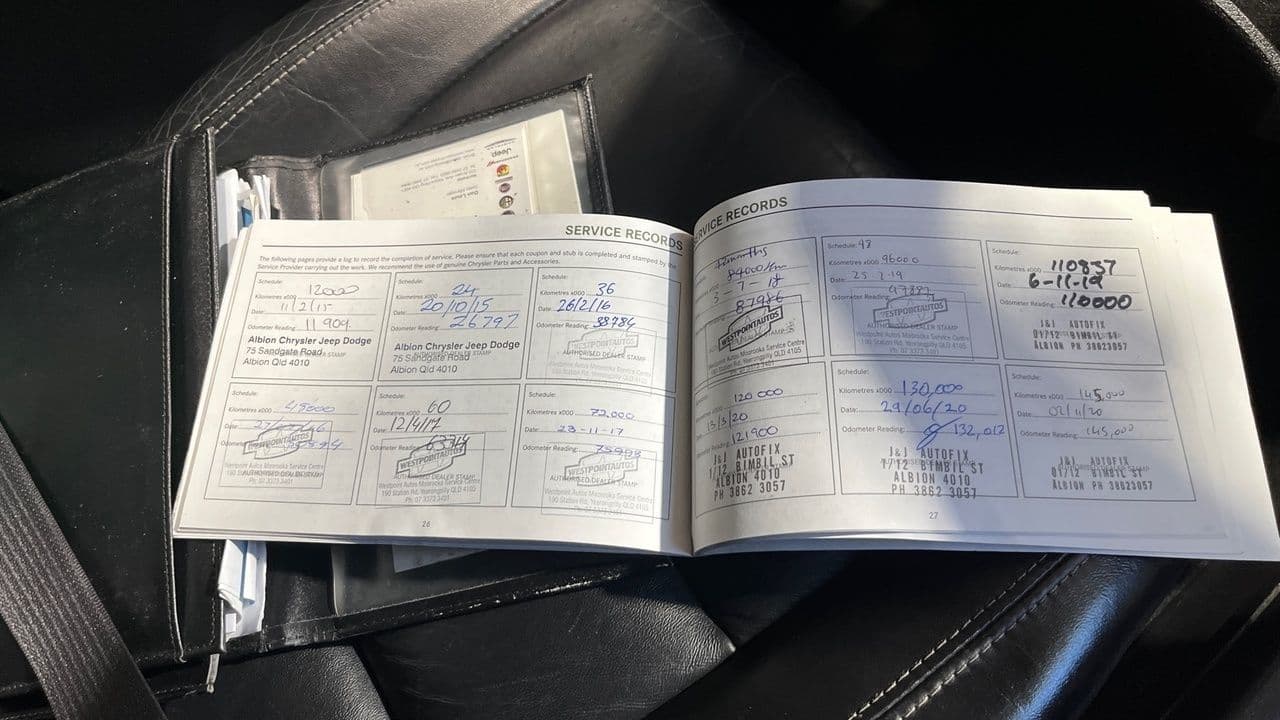 SERVICE RECORDS
The following pages provide a log to record the completion of service. Please ensure that each coupon and stub is completed and stamped by the
Service Provider carrying out the work. We recommend the use of genuine Chrysler Parts and Accessories.
Schedule:
Kilometres x000 12000
Date: 11/2/15
Odometer Reading: 11 909
Albion Chrysler Jeep Dodge
75 Sandgate Road
AUTHORISED DEALER STAMP
Albion Qld 4010
Schedule:
Kilometres x000 24
Date: 20/10/15
Odometer Reading: 26797
Albion Chrysler Jeep Dodge
75 Sandgate Road
AUTHORISED DEALER STAMP
Albion Qld 4010
Schedule:
Kilometres x000 36
Date: 26/2/16
Odometer Reading: 38784
WESTPOINTAUTOS
AUTHORISED DEALER STAMP
Westpoint Autos Moorooka Service Centre
190 Station Rd, Yeerongpilly QLD 4105
Schedule:
Kilometres x000 48000
Date:
Odometer
WESTPOINTAUTOS
Westpoint Autos Moorooka Service Centre
AUTHORISED DEALER STAMP
Ph: 07 3373 3401
Schedule:
Kilometres x000 60
Date: 12/4/17
WESTPOINTAUTOS
AUTHORISED DEALER STAMP
Westpoint Autos Moorooka Service Centre
190 Station Rd, Yeerongpilly QLD 4105
Ph: 07 3373 3401
Schedule:
Kilometres x000 72,000
Date: 23-11-17
Odometer Reading:
WESTPOINTAUTOS
AUTHORISED DEALER STAMP
Westpoint Autos Moorooka Service Centre
190 Station Rd, Yeerongpilly QLD 4105
Ph: 07 3373 3401
26
SERVICE RECORDS
12months
84000/km
87986
WESTPOINTAUTOS
Westpoint Autos Moorooka Service Centre
190 Station Rd, Yeerongpilly QLD 4105
Ph: 07 3373 3401
Schedule: 48
Kilometres x000 96000
Date: 25-2-19
Odometer Reading:
WESTPOINTAUTOS
AUTHORISED DEALER STAMP
Westpoint Autos Moorooka Service Centre
190 Station Rd, Yeerongpilly QLD 4105
Ph: 07 3373 3401
Schedule:
Kilometres x000 110837
Date: 6-11-19
Odometer Reading: 110000
J&J AUTOFIX
ALBION 4010
PH 38623057
120 000
13/3/20
121900
J&J AUTOFIX
1/12 BIMBIL ST
ALBION 4010
PH 3862 3057
Schedule:
Kilometres x000 130,000
Date: 29/06/20
Odometer Reading: 132,012
J&J AUTOFIX
1/12 BIMBIL ST
ALBION 4010
PH 3862 3057
Schedule:
Kilometres x000 145,000
Date: 02/11/20
Odometer Reading: 145,000
J&J AUTOFIX
ALBION 4010
PH 38623057
27